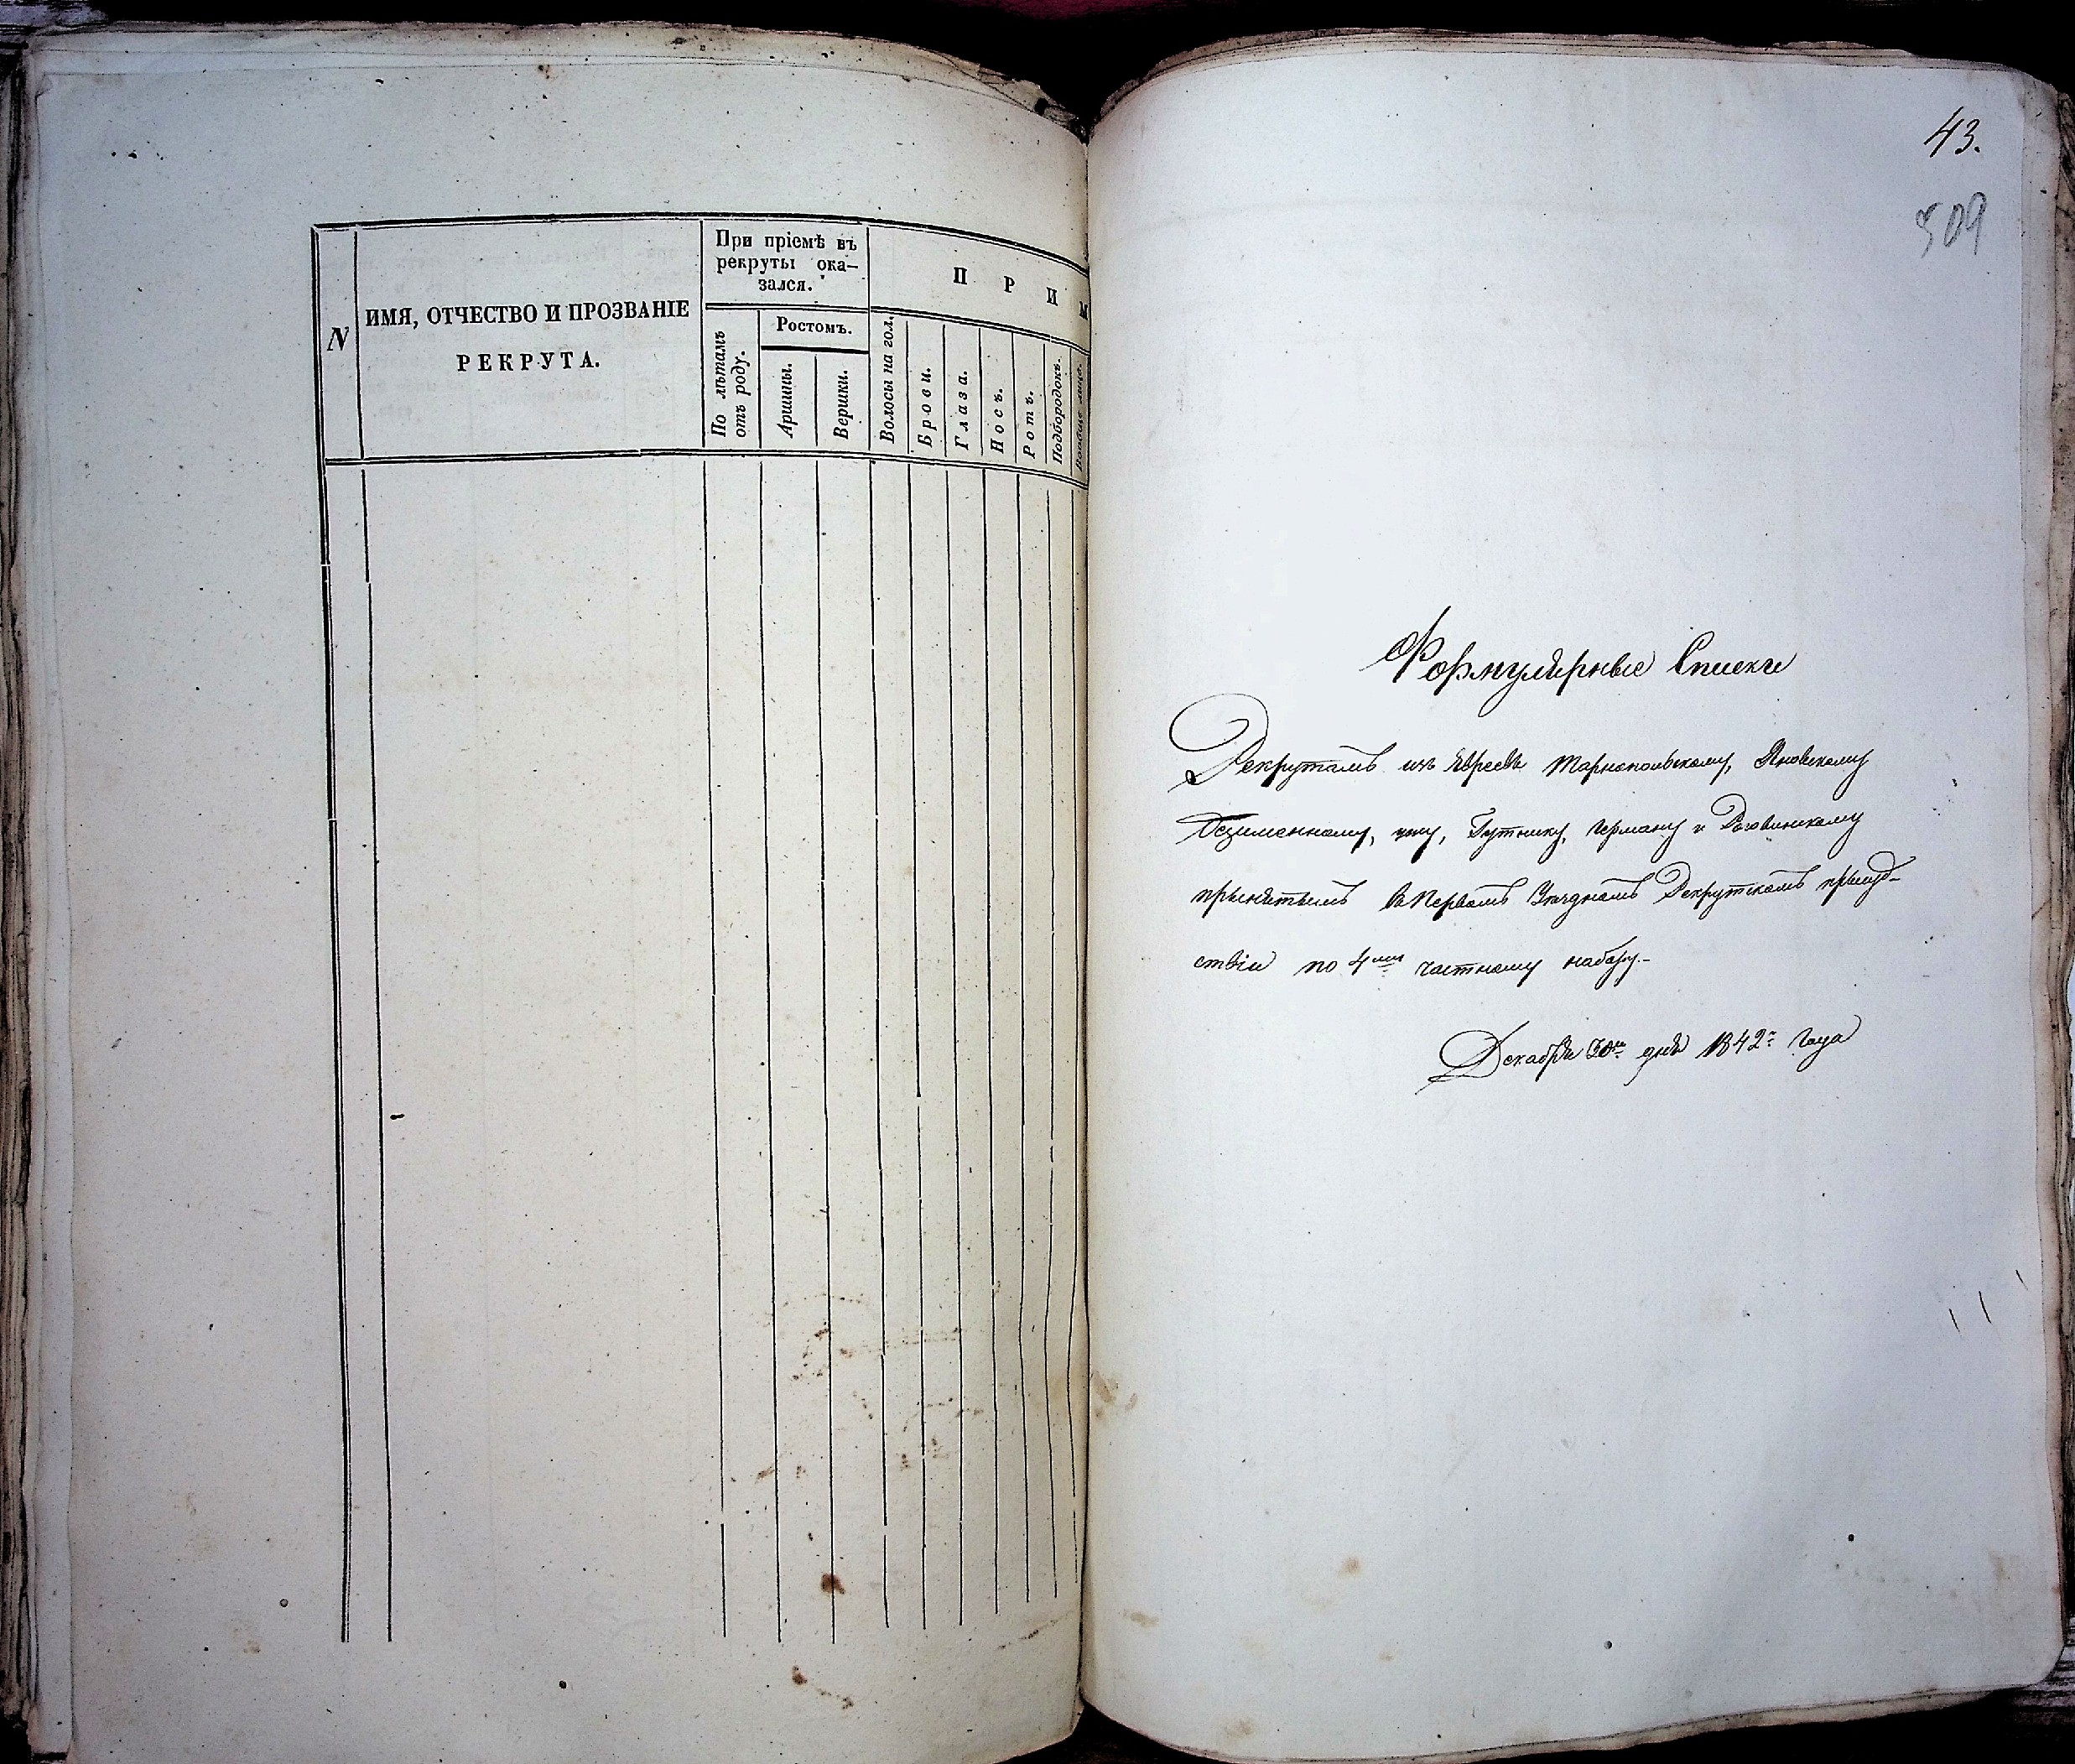 N
ИМЯ, ОТЧЕСТВО И ПРОЗВАНІЕ
РЕКРУТА.
При пріемѣ въ
рекруты ока-
зался.
По лѣтамъ
отъ роду.
Ростомъ.
Аршины.
Вершки.
П Р И М
Волосы на гол.
Брови.
Глаза.
Носъ.
Ротъ.
Подбородокъ.
Вообще лицо.
43.
509
Формулярные Списки
Рекрутамъ изъ Евреевъ Тарнопольскому, Яновскому
Гутнику, Герману и Роговинскому
принятымъ въ Первомъ Уѣздномъ Рекрутскомъ присуд-
ствіи по 4му частному набору.-
Декабря 30го дня 1842го года